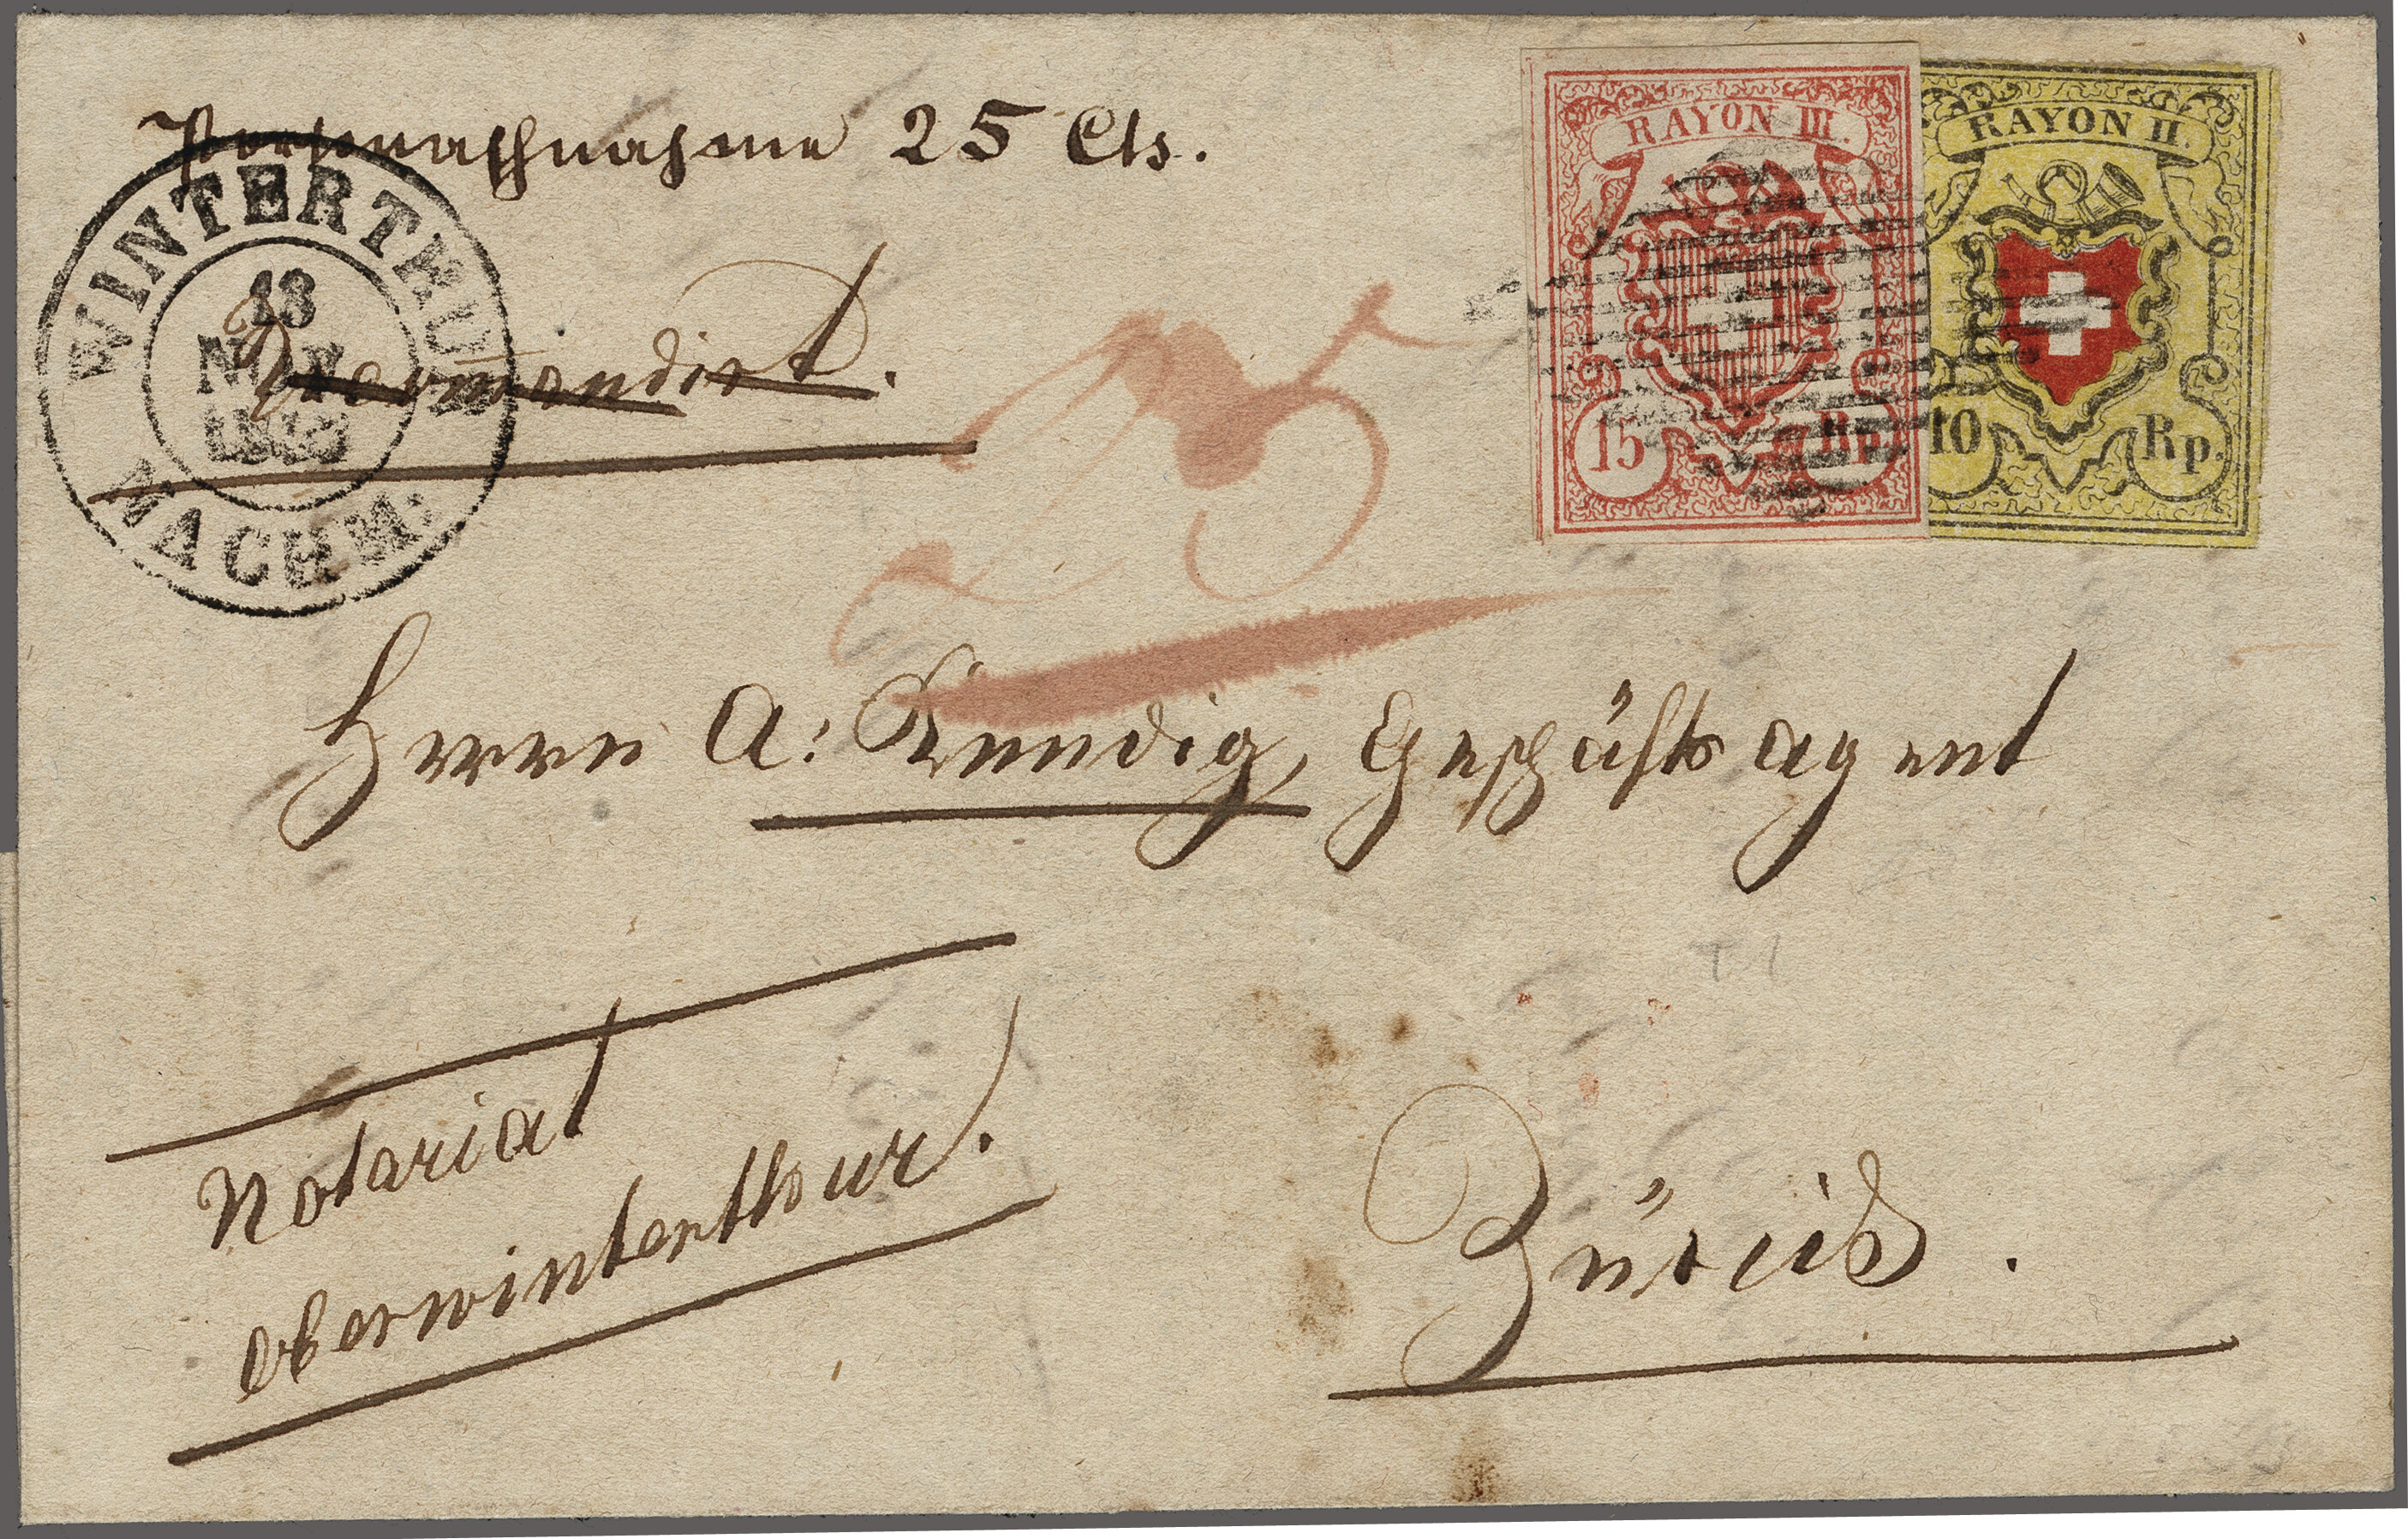 Portonachnahme 25 Cts.
WINTERTHUR
13
NACHM.
Recomandirt.
25
RAYON III.
15 Rp.
RAYON II.
10 Rp.
Herrn A: Kündig, Geschäftsagent
Notariat
Oberwinterthur.
Zürich.